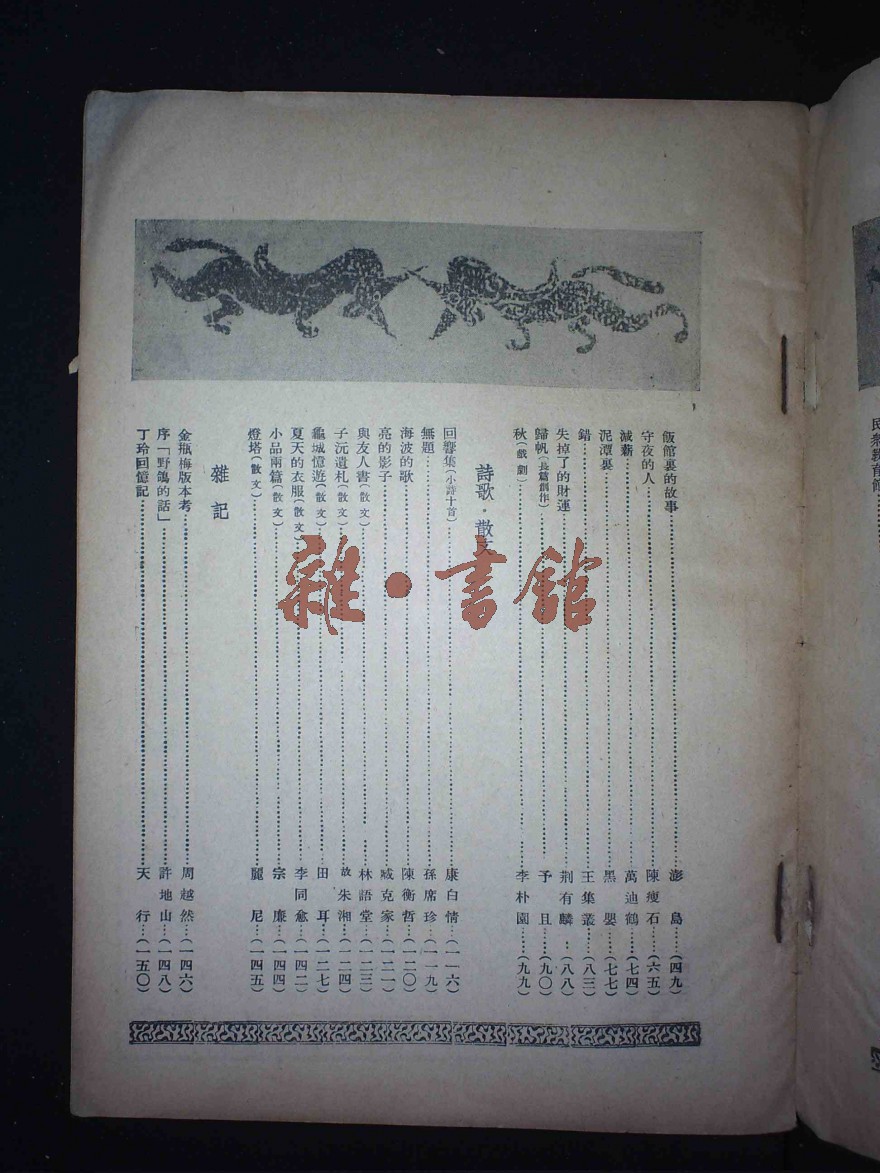 飯館裏的故事……澎島…(四九)
守夜的人……陳瘦石…(六五)
減薪……萬迪鶴…(七四)
泥潭裏……黑嬰…(七七)
錯……王集叢…(八三)
失掉了的財運……荆有麟…(八八)
歸帆(長篇創作)……予且…(九〇)
秋(戲劇)……李朴園…(九九)
詩歌·散文
回響集(小詩十首)……康白情…(一一六)
無題……孫席珍…(一一九)
海波的歌……陳衡哲…(一二〇)
亮的影子……臧克家…(一二一)
與友人書(散文)……林語堂…(一二三)
子沅遺札(散文)……故朱湘…(一二四)
龜城憶遊(散文)……田耳…(一二七)
夏天的衣服(散文)……李同愈…(一四二)
小品兩篇(散文)……宗廉…(一四四)
燈塔(散文)……麗尼…(一四五)
雜記
金瓶梅版本考……周越然…(一四六)
序「野鴿的話」……許地山…(一四八)
丁玲回憶記……天行…(一五〇)
雜·書館
民衆教育館